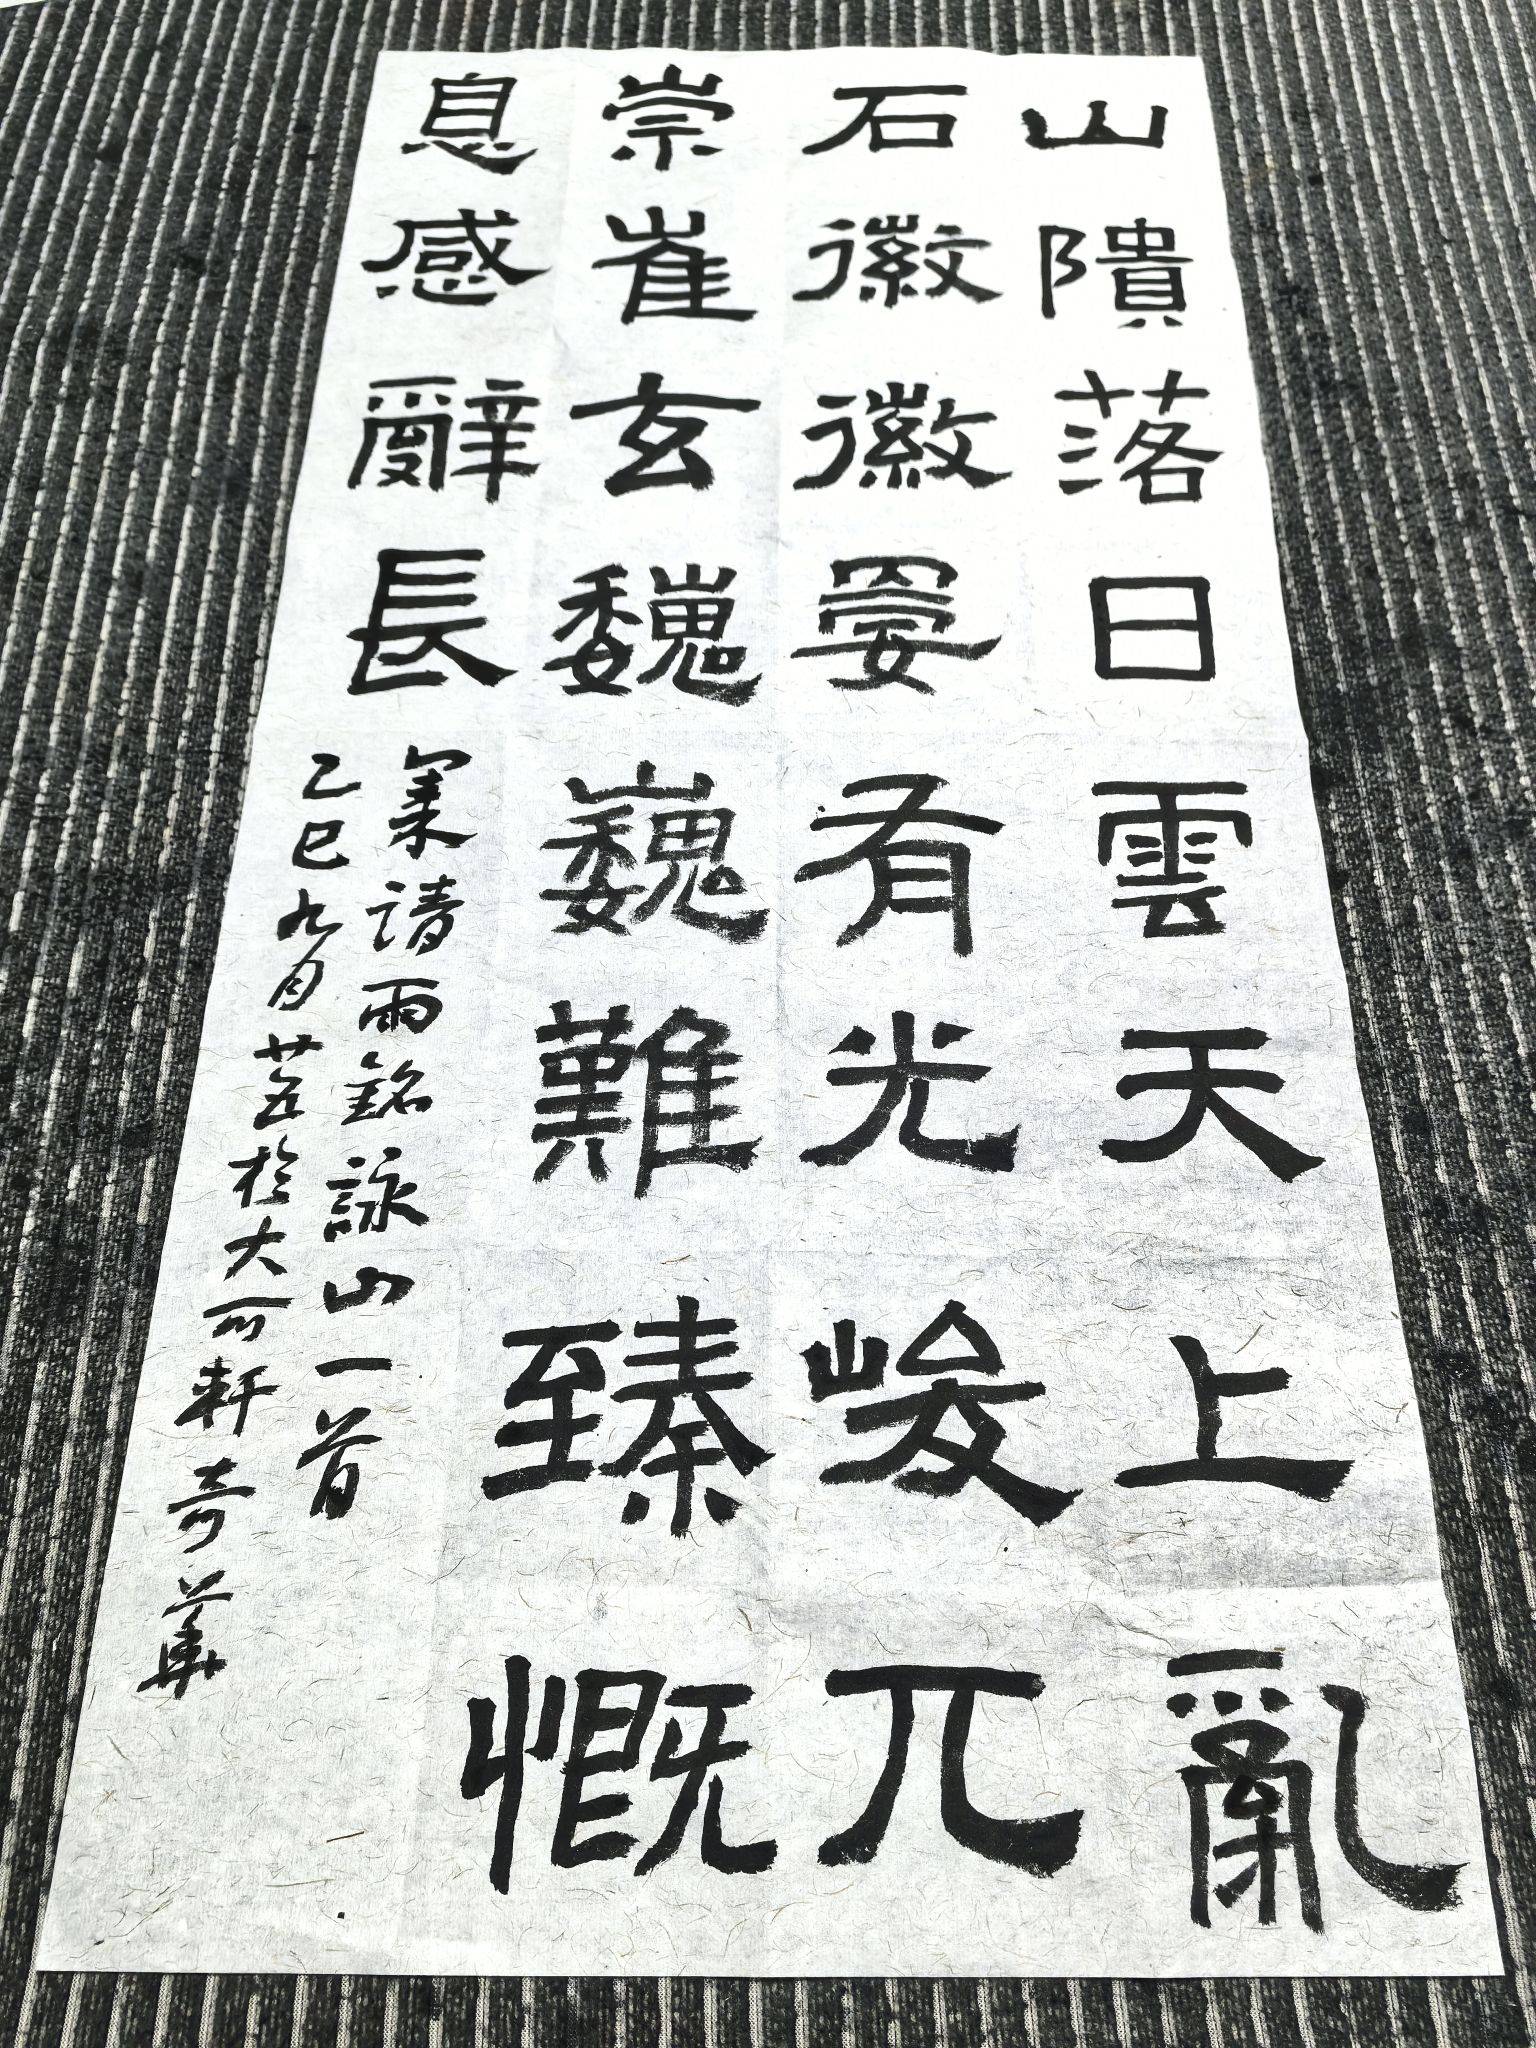 山隤落日雲天上亂
石徽徽有光峻兀
崇崔玄巍巍難臻慨
息感辭長
集請雨銘詠山一首
乙巳九月廿五於大可軒奇